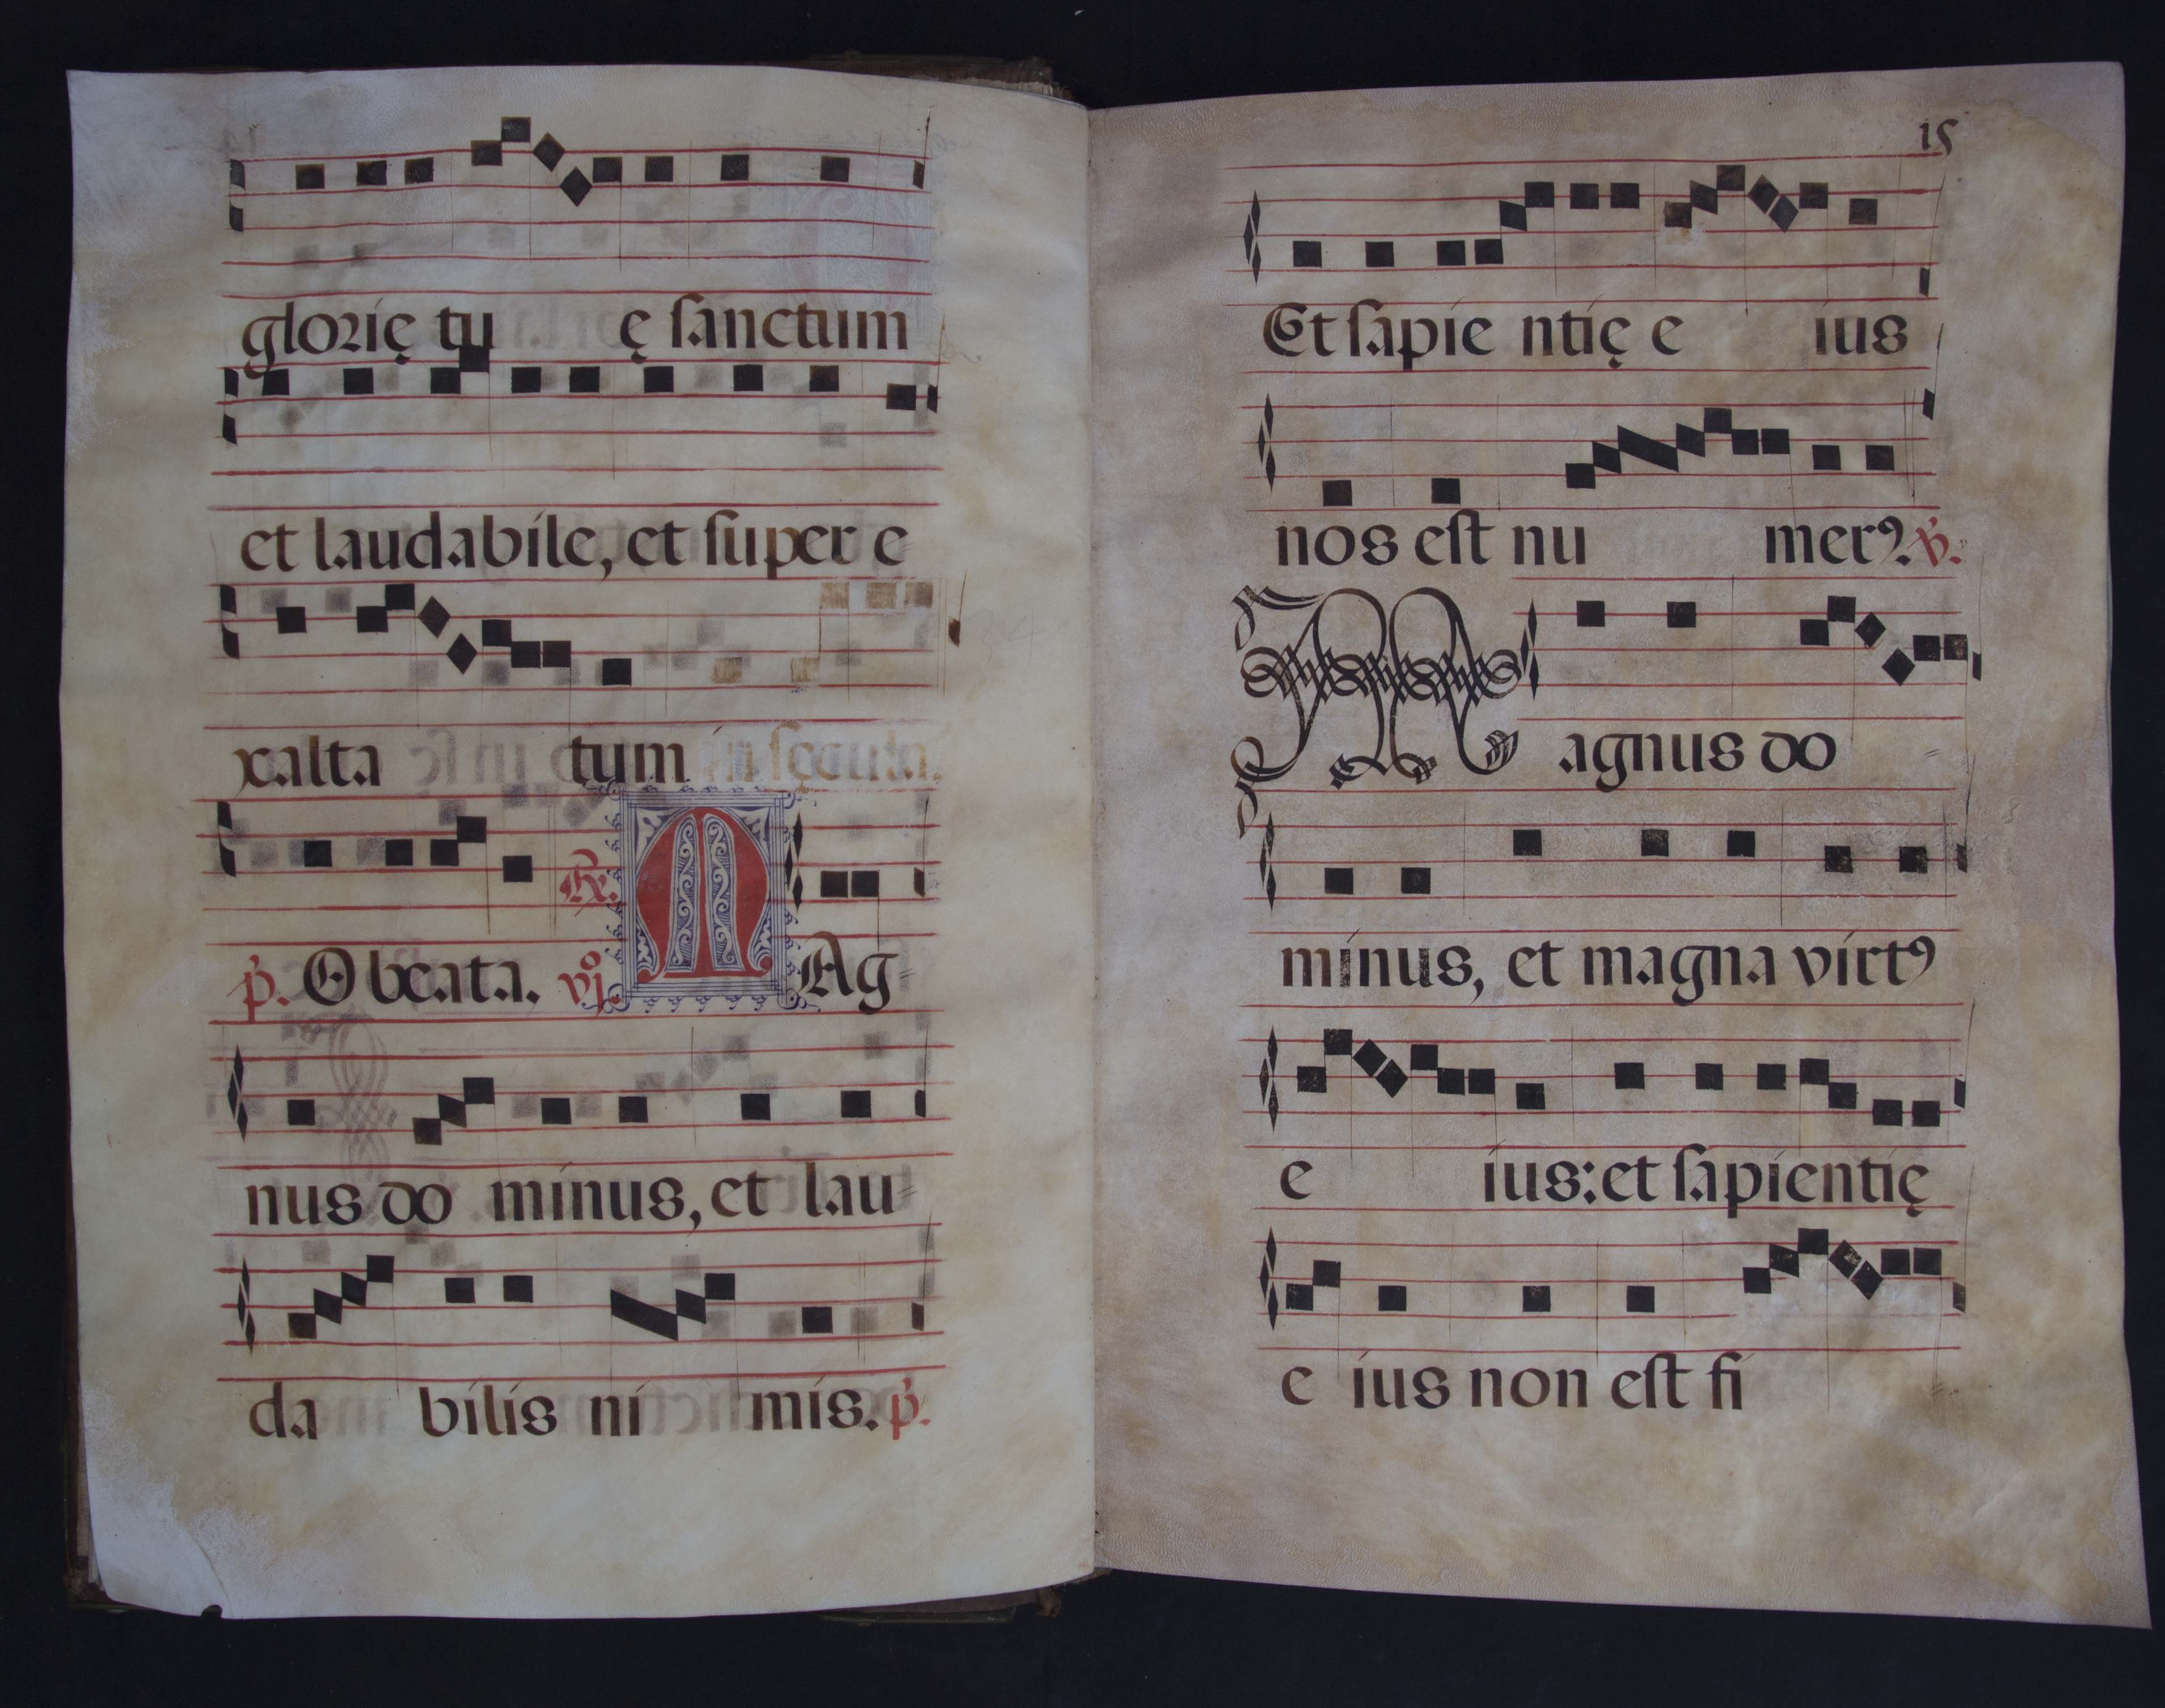 glorię tu ę sanctum
et laudabile, et super e
xalta tum in sęcula.
p̃. O beata. vjº. R̃. M Ag=
nus do minus, et lau=
da bilis ni mis. p̃.
15
Et sapie ntię e ius
nos est nu merꝰ. v̉.
M agnus do=
minus, et magna virtꝰ
e ius: et sapientię
e ius non est fi=